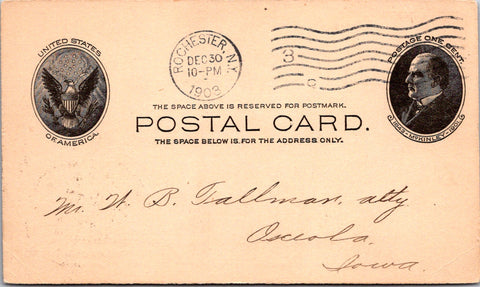 UNITED STATES
OF AMERICA.
ROCHESTER, N.Y.
DEC 30
10-PM
1903
3
POSTAGE ONE CENT.
1843-McKINLEY-1901.
THE SPACE ABOVE IS RESERVED FOR POSTMARK.
POSTAL CARD.
THE SPACE BELOW IS FOR THE ADDRESS ONLY.
Mr. W. B. Tallman, atty
Osceola,
Iowa.